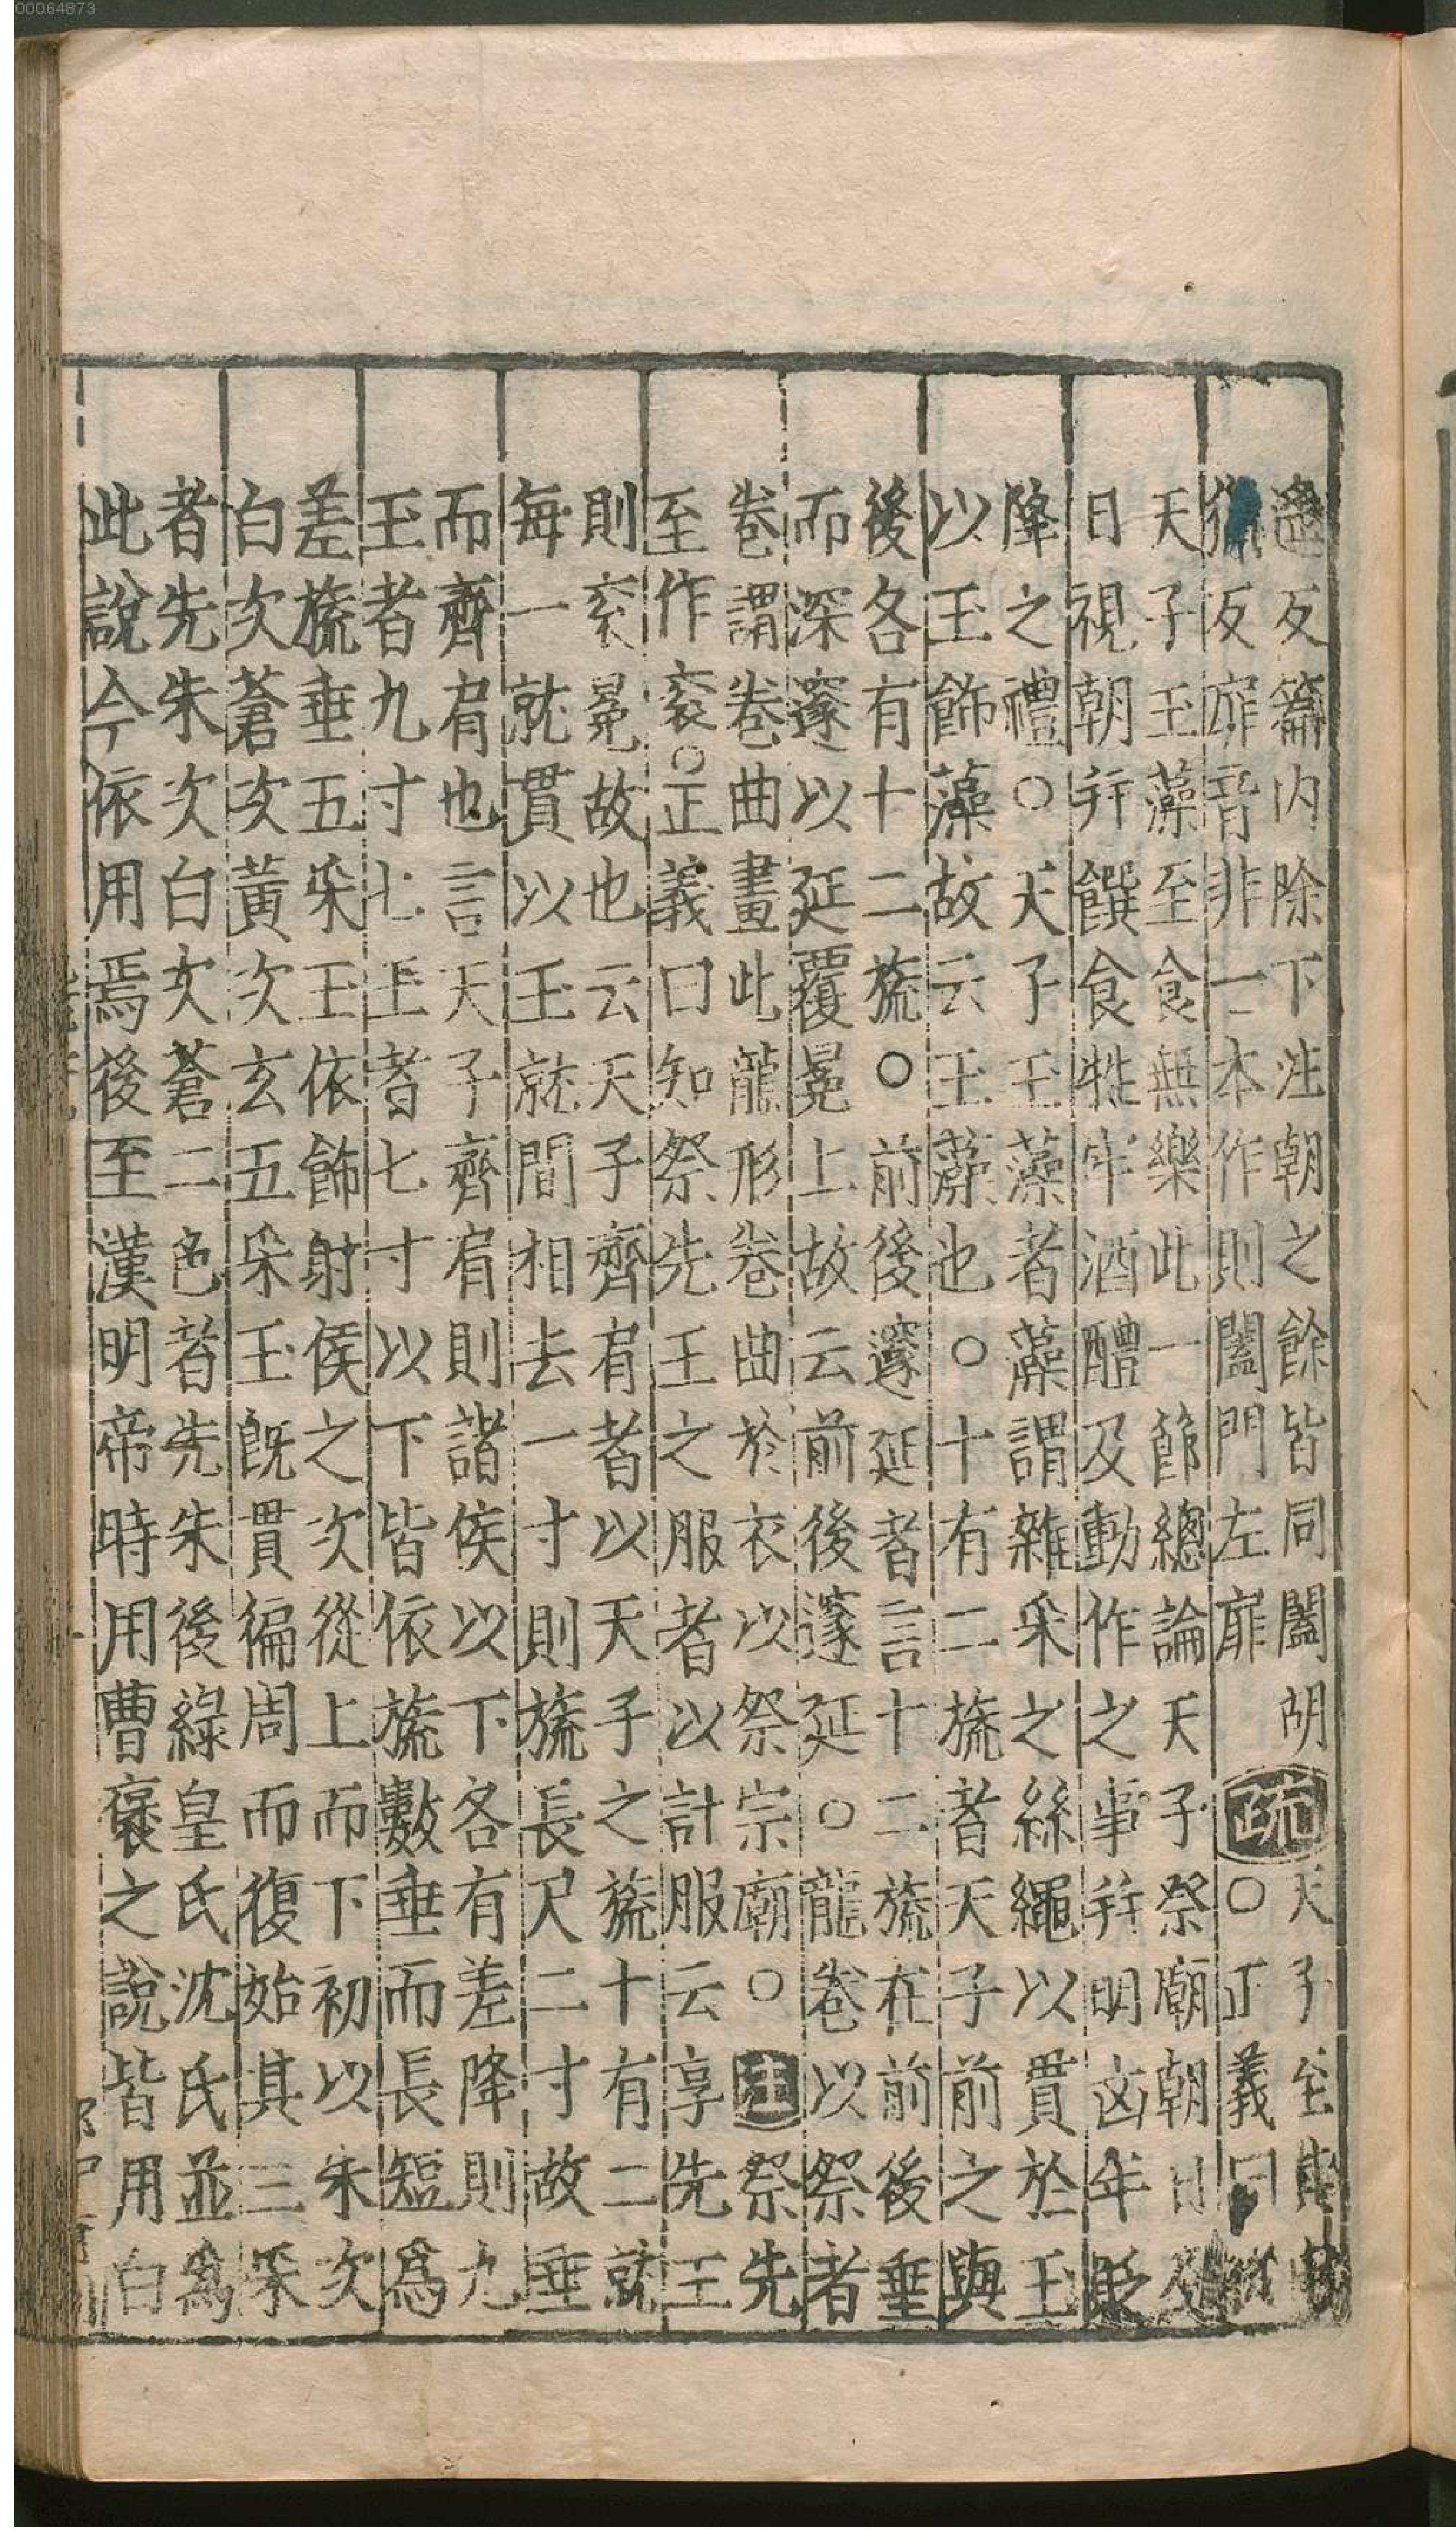 00064873
遥反篇内除下注朝之餘皆同闔胡
反扉音非一本作則闔門左扉
疏
天子至
○正義曰
天子玉藻至食無樂此一節總論天子祭廟朝日及
日視朝并饌食牲牢酒醴及動作之事并明凶年貶
降之禮○天子玉藻者藻謂雜采之絲繩以貫於玉
以玉飾藻故云玉藻也○十有二旒者天子前之與
後各有十二旒○前後邃延者言十二旒在前後垂
而深邃以延覆冕上故云前後邃延○龍卷以祭者
卷謂卷曲畫此龍形卷曲於衣以祭宗廟○注祭先
至作衮○正義曰知祭先王之服者以計服云享先王
則衮冕故也云天子齊肩者以天子之旒十有二就
每一就貫以玉就間相去一寸則旒長尺二寸故垂
而齊肩也言天子齊肩則諸侯以下各有差降則九
玉者九寸七玉者七寸以下皆依旒數垂而長短爲
差旒垂五采玉依飾射侯之次從上而下初以朱次
白次蒼次黃次玄五采玉旣貫徧周而復始其三采
者先朱次白次蒼二色者先朱後綠皇氏沈氏並爲
此說今依用焉後至漢明帝時用曹襃之說皆用白